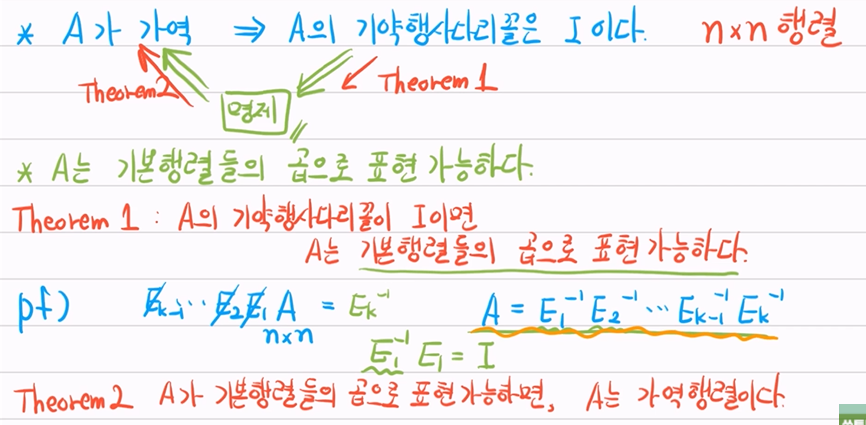 * A가 가역 ⇒ A의 기약행사다리꼴은 I 이다. n×n 행렬
Theorem2 명제 Theorem 1
* A는 기본행렬들의 곱으로 표현 가능하다.
Theorem 1 : A의 기약행사다리꼴이 I이면
A는 기본행렬들의 곱으로 표현 가능하다.
pf) E_{k-1} ⋯ E_2 E_1 A = E_k^{-1} A = E_1^{-1} E_2^{-1} ⋯ E_{k-1}^{-1} E_k^{-1}
n×n
E_1^{-1} E_1 = I
Theorem2 A가 기본행렬들의 곱으로 표현 가능하면, A는 가역행렬이다.